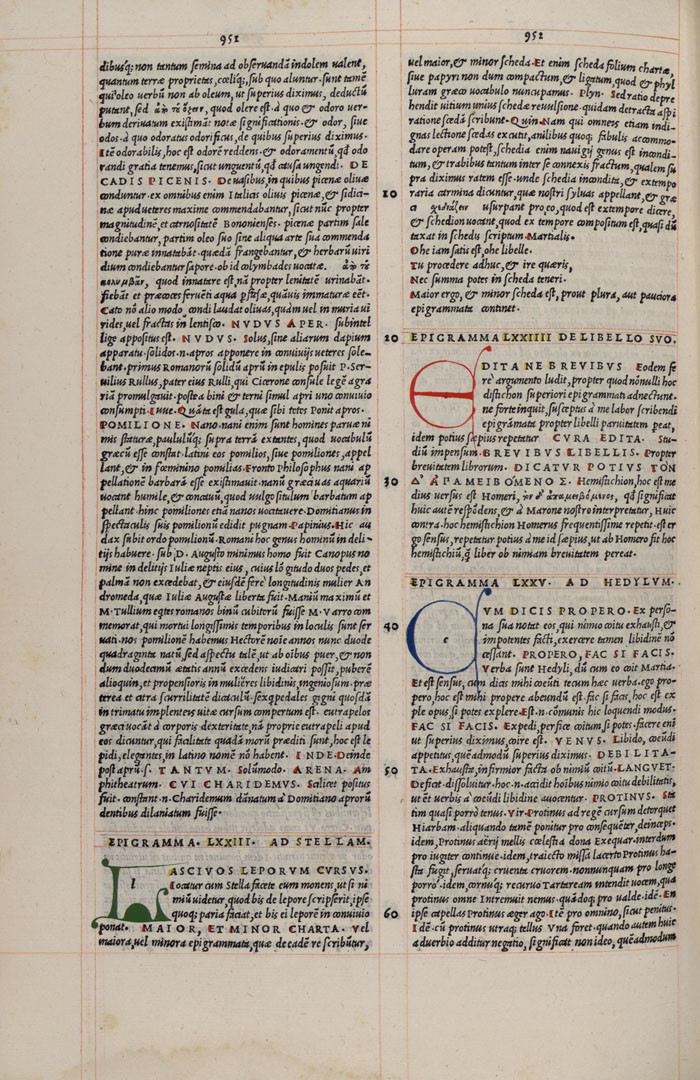 951
dibusq; non tantum semina ad obseruandā indolem ualent,
quantum terræ proprietas, cœliq; sub quo aluntur. sunt tamē
qui oleo uerbū non ab oleum, ut superius diximus, deductū
putant, sed quod olere est. à quo & odoro uer-
bum deriuatum existimāt. notæ significationis. & odor, siue
odos. à quo odoratus odorificus, de quibus superius diximus.
Itē odorabilis, hoc est odorē reddens. & odoramentū, qđ odo
randi gratia tenemus, sicut unguentū, qđ causa ungendi. DE
CADIS PICENIS. De uasibus, in quibus picenæ oliuæ
conduntur. ex omnibus enim Italicis oliuis picenæ, & sidici-
næ apud ueteres maxime commendabantur, sicut nūc propter
magnitudinē, et carnositatē Bononienses. picenæ partim sale
condiebantur, partim oleo suo sine aliqua arte sua commenda
tione puræ innatabāt. quædā frangebantur, & herbarū uiri
dium condiebantur sapore. ob id colymbades uocatæ.
quod innatare est, nā propter lenitatē urinabāt.
fiebāt et præcoces feruēti aqua quāuis immaturæ eēt.
Cato nō alio modo, condi laudat oliuas, quàm uel in muria ui
rides, uel fractas in lentisco. NVDVS APER. subintel
lige appositus est. NVDVS. Solus, sine aliarum dapium
apparatu. solidos. n. apros apponere in conuiuijs ueteres sole-
bant. primus Romanorū solidū aprū in epulis posuit P. Ser-
uilius Rullus, pater eius Rulli, qui Cicerone consule legē agra
riā promulgauit. postea bini & terni simul apri uno conuiuio
consumpti. Iuue. Quāta est gula, quæ sibi totos Ponit apros.
POMILIONE. Nano. nani enim sunt homines paruæ ni
mis staturæ, paululūq; supra terrā extantes, quod uocabulū
græcū esse constat. latini eos pomilios, siue pomiliones, appel
lant, & in fœminino pomilias. Fronto Philosophus nani ap
pellationē barbarā esse existimauit. nanū græci uas aquariū
uocant humile, & concauū, quod uulgo situlum barbatum ap
pellant. hinc pomiliones etiā nanos uocauere. Domitianus in
spectaculis suis pomilionū edidit pugnam. Papinius. Hic au
dax subit ordo pomilionū. Romani hoc genus hominū in deli-
tijs habuere. sub D. Augusto minimus homo fuit Canopus no
mine in delitijs Iuliæ neptis eius, cuius lōgitudo duos pedes, et
palmā non excedebat, & eiusdē ferè longitudinis mulier An
dromeda, quæ Iuliæ Augustæ liberta fuit. Maniū maximū et
M. Tullium eqtes romanos binū cubiterū fuisse M. Varro com
memorat, qui mortui longissimis temporibus in loculis sunt ser
uati. nos pomilionē habemus Hectorē noīe annos nunc duode
quadraginta natū, sed aspectu talē, ut ab oībus puer, & non
dum duodecimū ætatis annū excedens iudicari possit, puberē
alioquin, et propensioris in mulieres libidinis, ingeniosum. præ
terea et citra scurrilitatē dicaculū. sexqpedales gigni quosdā
in trimatu implentes uitæ cursum compertum est. eutrapelos
græci uocāt à corporis dexteritate, nā proprie eutrapeli apud
eos dicuntur, qui facilitate quadā morū præditi sunt, hoc est le
pidi, elegantes, in latino nomē nō habent. INDE. Deinde
post aprū. s. TANTVM. Solūmodo. ARENA. Am
phitheatrum. CVI CHARIDEMVS. Scilicet positus
fuit. constat. n. Charidemum dānatum à Domitiano aprorū
dentibus dilaniatum fuisse.
EPIGRAMMA. LXXIII. AD STELLAM.
LASCIVOS LEPORVM CVRSVS.
Iocatur cum Stella facete eum monens, ut si ni
miū uidetur, quod bis de lepore scripserit, ipse
quoq; paria faciat, et bis ei leporē in conuiuio
ponat. MAIOR, ET MINOR CHARTA. Vel
maiora, uel minora epigrammata, quæ de eadē re scribūtur,
952
uel maior, & minor scheda. Et enim scheda folium chartæ,
siue papyri non dum compactum, & ligatum, quod & phyl
luram græco uocabulo nuncupamus. Plyn. Sed ratio depre
hendit uitium unius schedæ reuulsione. quidam detracta aspi
ratione scedā scribunt. Quin. Nam qui omnes etiam indi-
gnas lectione scedas excutit, anilibus quoq; fabulis accommo-
dare operam potest, schedia enim nauigij genus est incondi-
tum, & trabibus tantum inter se connexis fractum, qualem su
pra diximus ratem esse. unde schedia incondita, & extempo
10 raria carmina dicuntur, quæ nostri syluas appellant, & græ
ci usurpant pro eo, quod est extempore dicere,
& schedion uocant, quod ex tempore compositum est, quasi dū
taxat in schedis scriptum. Martialis.
Ohe iam satis est, ohe libelle.
Tu procedere adhuc, & ire quæris,
Nec summa potes in scheda teneri.
Maior ergo, & minor scheda est, prout plura, aut pauciora
epigrammata continet.
20 EPIGRAMMA LXXIIII DE LIBELLO SVO.
EDITA NE BREVIBVS Eodem fe
rè argumento ludit, propter quod nōnulli hoc
distichon superiori epigrammati adnectunt.
ne forte inquit, susceptus à me labor scribendi
epigrāmata propter libelli paruitatem peat,
idem potius sæpius repetatur. CVRA EDITA. Stu-
diū impensum. BREVIBVS LIBELLIS. Propter
breuitatem librorum. DICATVR POTIVS TON
30 Δ' ΑΠΑΜΕΙΒΟΜΕΝΟΣ. Hemistichion, hoc est me
dius uersus est Homeri, qđ significat
huic autē respōdens, & à Marone nostro interpretatur, Huic
contra. hoc hemistichion Homerus frequentissime repetit. est er
go sensus, repetatur potius à me id sæpius, ut ab Homero fit hoc
hemistichiū, q̄ liber ob nimiam breuitatem pereat.
EPIGRAMMA LXXV. AD HEDYLVM.
CVM DICIS PROPERO. Ex perso-
na sua notat eos, qui nimio coitu exhausti, &
40 impotentes facti, exercere tamen libidinē nō
cessant. PROPERO, FAC SI FACIS.
Verba sunt Hedyli, dū cum eo coit Martia.
Et est sensus, cum dicis mihi coeūti tecum hæc uerba. ego pro-
pero, hoc est mihi propere abeundū est. fac si facis, hoc est ex
ple opus, si potes explere. Est. n. cōmunis hic loquendi modus.
FAC SI FACIS. Expedi, perfice coitum, si potes. facere enī
ut superius diximus, coire est. VENVS. Libido, coeūdi
appetitus, quēadmodū superius diximus. DEBILITA-
50 TA. Exhausta, infirmior facta ob nimiū coitū. LANGVET.
Deficit. dissoluitur. hoc. n. accidit hoībus nimio coitu debilitatis,
ut eēt uerbis à coeūdi libidine auocentur. PROTINVS. Sta
tim quasi porrò tenus. Vir. Protinus ad regē cursum detorquet
Hiarbam. aliquando tamē ponitur pro consequēter, deinceps.
idem, Protinus aërij mellis cœlestia dona Exequar. interdum
pro iugiter continue. idem, traiecto missa lacerto Protinus ha-
sta fugit, seruatq; cruenta cruorem. nonnunquam pro longe
porro. idem, cornuq; recuruo Tartaream intendit uocem, qua
protinus omne Intremuit nemus. quādoq; pro ualde. idē. En
60 ipse capellas Protinus æger ago. Itē pro omnino, sicut penitus.
Idē. cū protinus utraq; tellus Vna foret. quando autem huic
aduerbio additur negatio, significat non ideo, quēadmodum